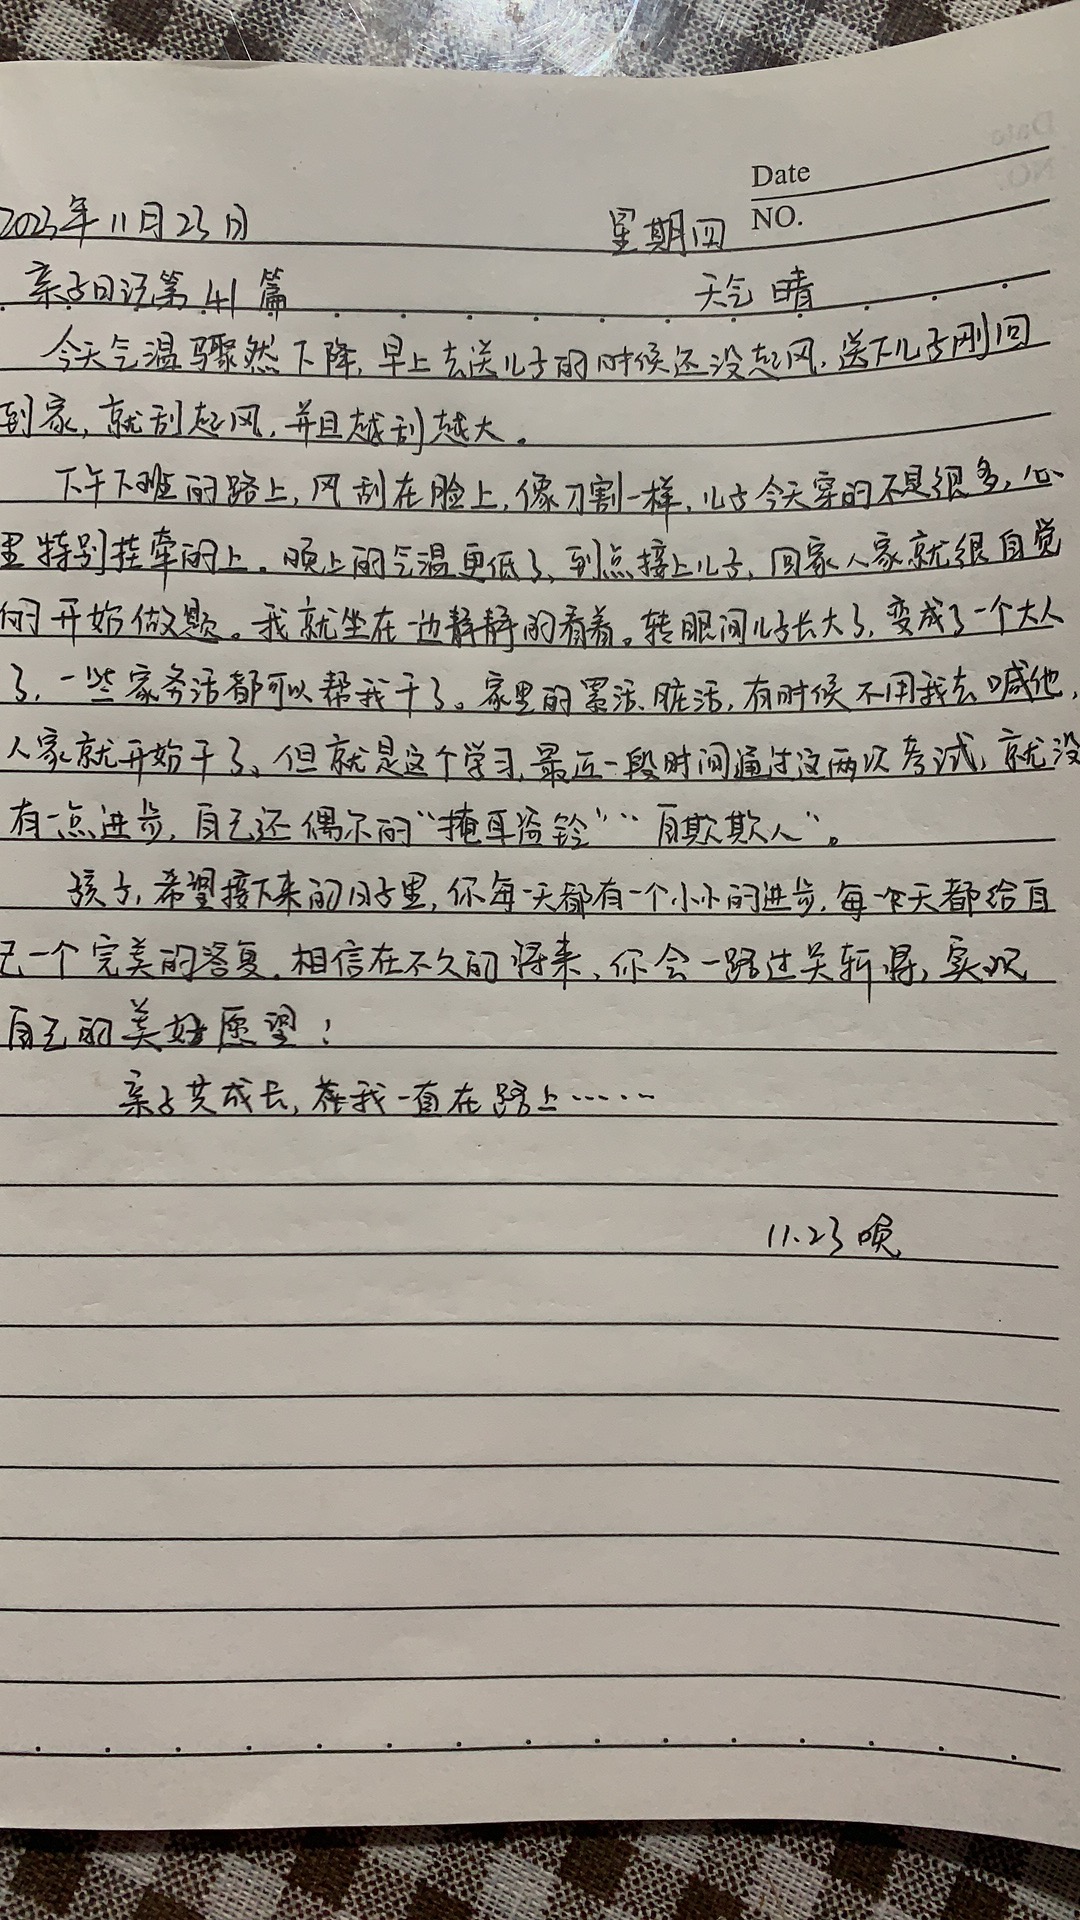 Date
NO.
2023年11月23日 星期四
亲子日记第41篇 天气 晴
今天气温骤然下降,早上去送儿子的时候还没起风,送下儿子刚回
到家,就刮起风,并且越刮越大。
下午下班的路上,风刮在脸上,像刀割一样,儿子今天穿的不是很多,心
里特别挂牵的上。晚上的气温更低了,到点接上儿子,回家人家就很自觉
的开始做题。我就坐在一边静静的看着。转眼间儿子长大了,变成了一个大人
了,一些家务活都可以帮我干了。家里的累活、脏活,有时候不用我去喊他,
人家就开始干了、但就是这个学习,最近一段时间通过这两次考试,就没
有一点进步,自己还偶尔的“掩耳盗铃”“自欺欺人”。
孩子,希望接下来的日子里,你每一天都有一个小小的进步,每一天都给自
己一个完美的答复,相信在不久的将来,你会一路过关斩将,实现
自己的美好愿望!
亲子共成长,我一直在路上……
11.23 晚